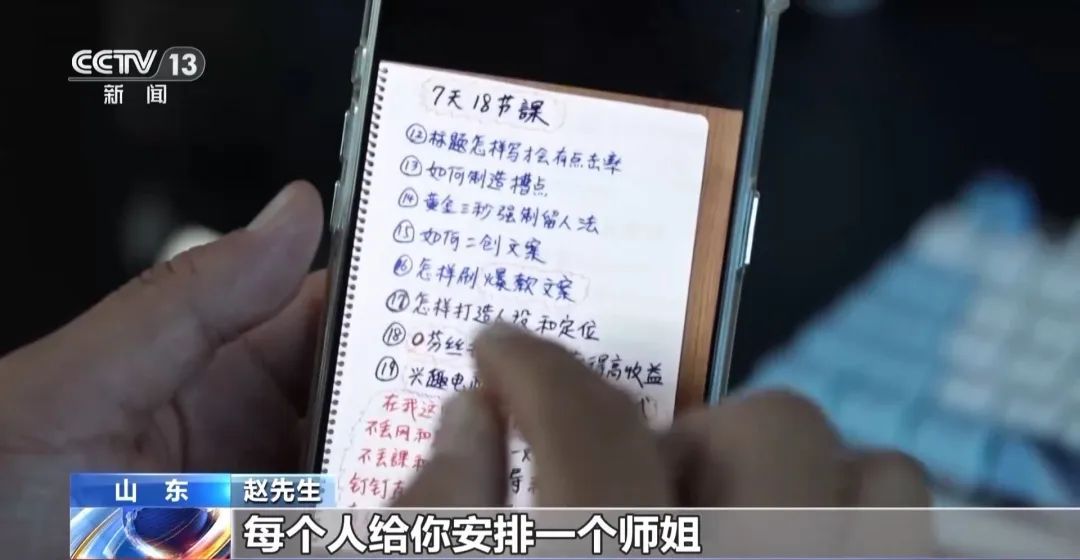 CCTV 13
新闻
7天18节課
⑫标题怎样写才会有点击率
⑬如何制造槽点
⑭黄金三秒强制留人法
⑮如何二创文案
⑯怎样刷爆款文案
⑰怎样打造人设和定位
⑱0芬丝 得高收益
⑲兴趣电
在我这
不丢网和
不丢課和
钉钉直
山东 赵先生
每个人给你安排一个师姐